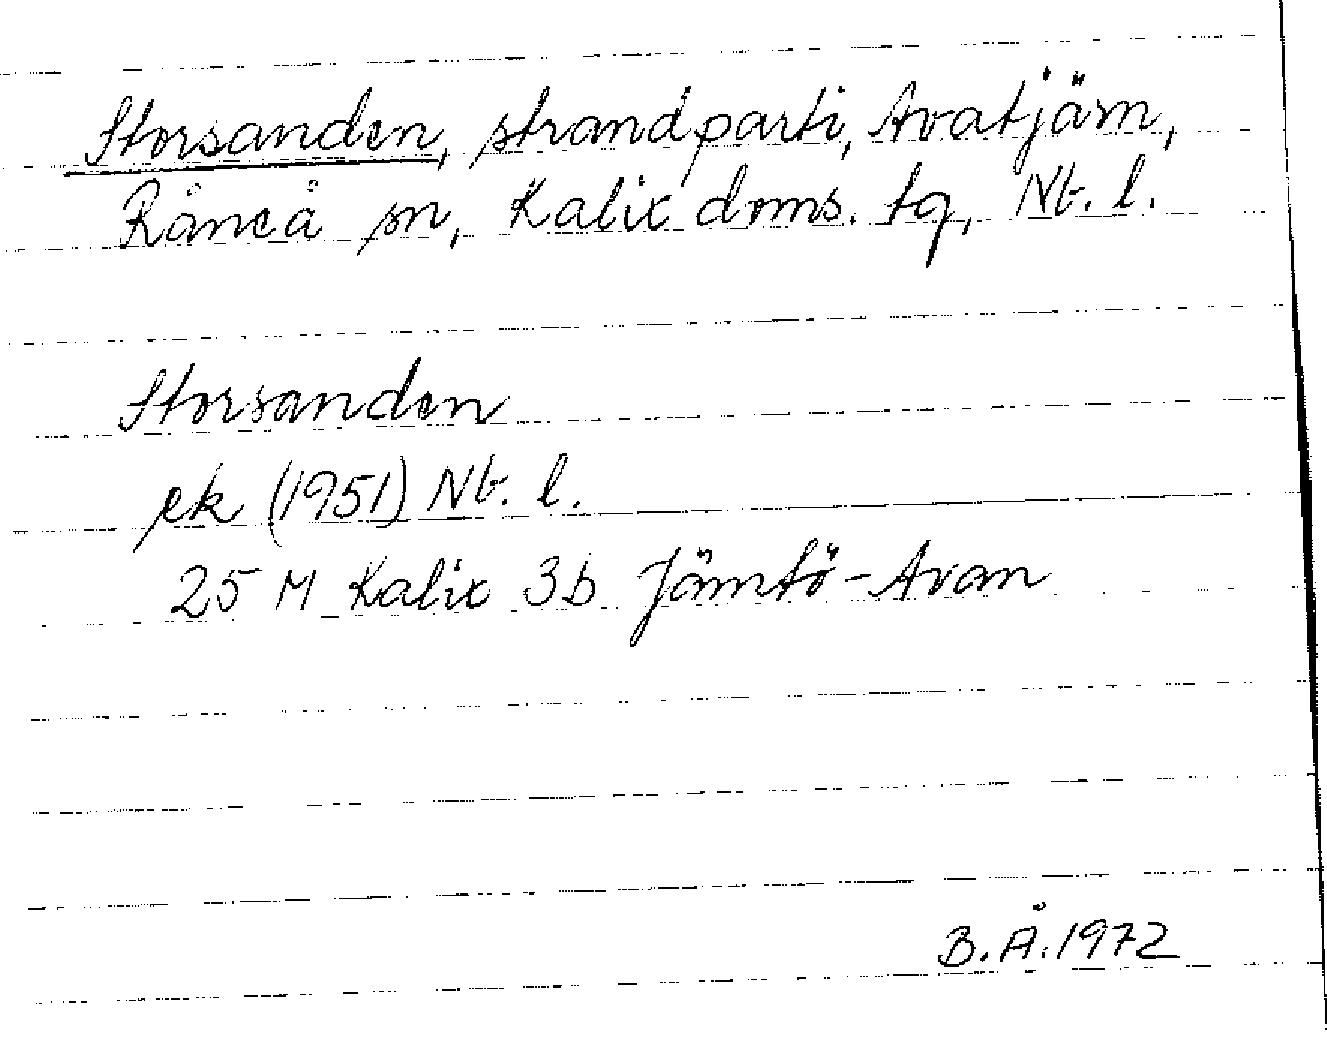 Storsanden, strandparti, Avatjärn,
Råneå sn, Kalix doms. tg, Nb. l.
Storsanden
ek (1951) Nb. l.
25 M Kalix 3b Jämtö-Avan
B.Å. 1972